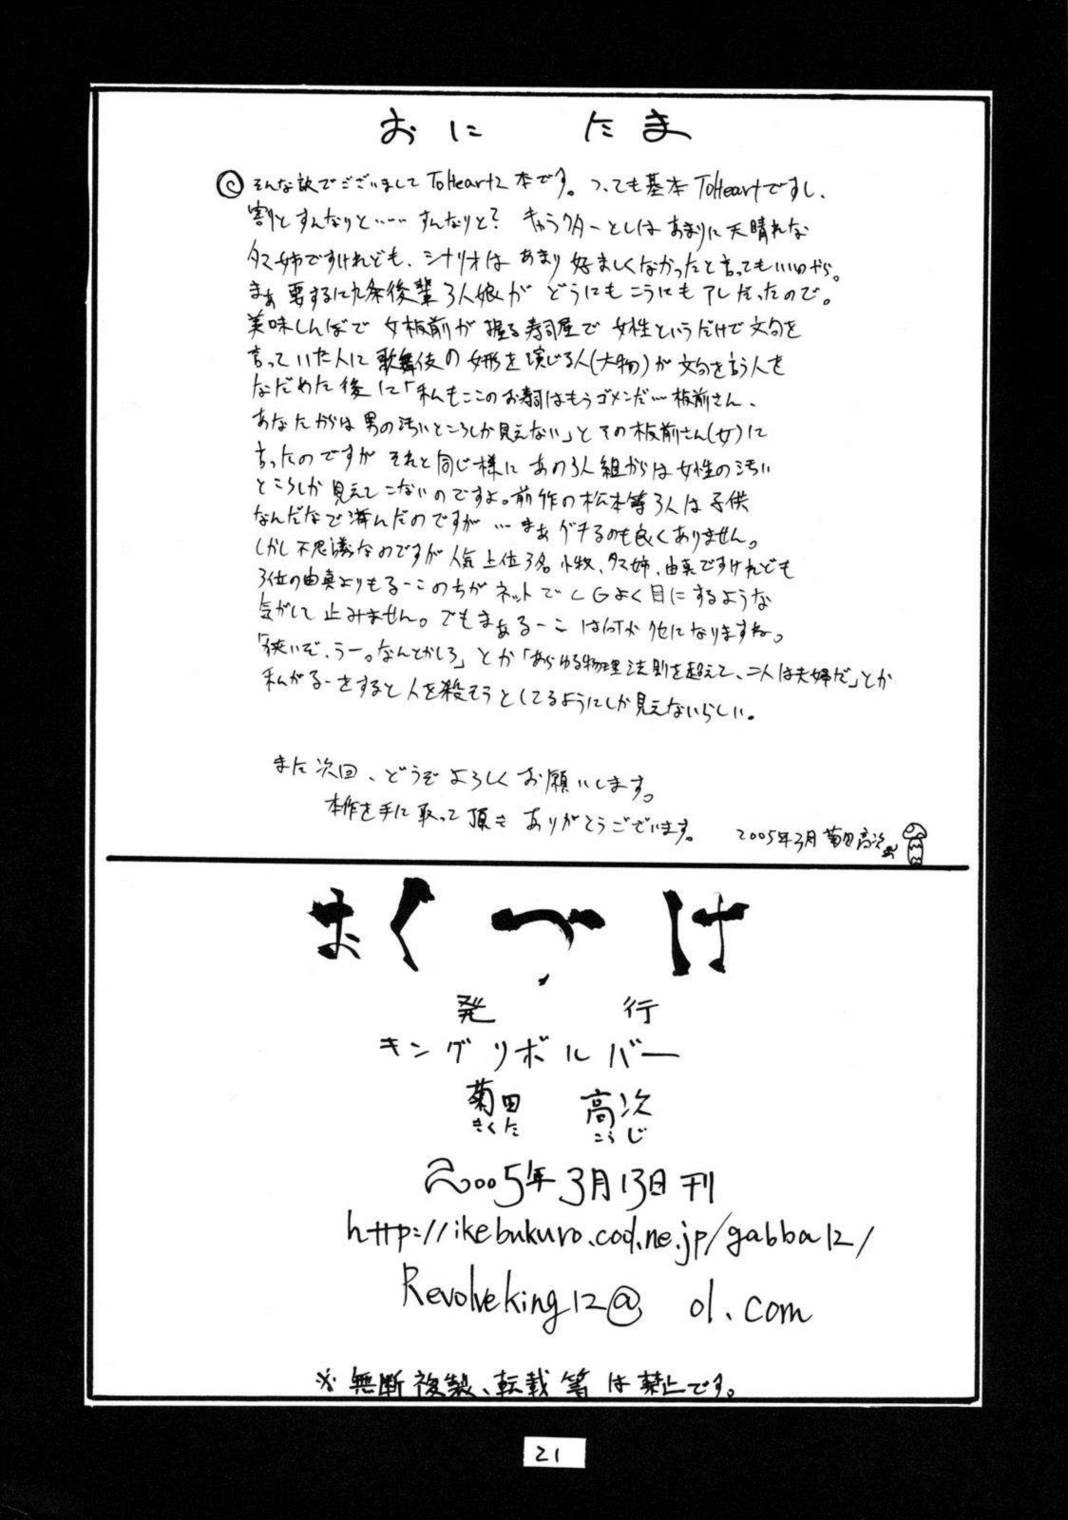 おに たま
そんな訳でございましてToHeart2本です。つっても基本ToHeartですし、
割とすんなりと……すんなりと？ キャラクターとしはあまりに天晴れな
タマ姉ですけれども、シナリオはあまり好ましくなかったと言ってもいいのやら。
まぁ要するに九条後輩3人娘がどうにもこうにもアレだったので。
美味しんぼで女板前が握る寿司屋で女性というだけで文句を
言っていた人に歌舞伎の女形を演じる人(大物)が文句を言う人を
なだめた後に「私もここのお寿司はもうゴメンだ…板前さん、
あなたからは男の汚いところしか見えない」とその板前さん(女)に
言ったのですがそれと同じ様にあの3人組からは女性の汚い
ところしか見えてこないのですよ。前作の松本等3人は子供
なんだなで済んだのですが…まぁグチるのも良くありません。
しかし不思議なのですが人気上位3名小牧、タマ姉、由真ですけれども
3位の由真よりもるーこのちがネットでCGよく目にするような
気がして止みません。でもまぁるーこは何か他になりますね。
「狭いぞ、うー。なんとかしろ」とか「あらゆる物理法則を超えて、二人は夫婦だ」とか
私がるーをすると人を殺そうとしてるようにしか見えないらしい。
また次回、どうぞよろしくお願いします。
本作を手に取って頂きありがとうございます。
2005年3月 菊田高次
おくづけ
発 行
キングリボルバー
菊田 高次
きくた こうじ
2005年3月13日刊
http://ikebukuro.cool.ne.jp/gabba12/
Revolveking12@ ol.com
※無断複製、転載等は禁止です。
21